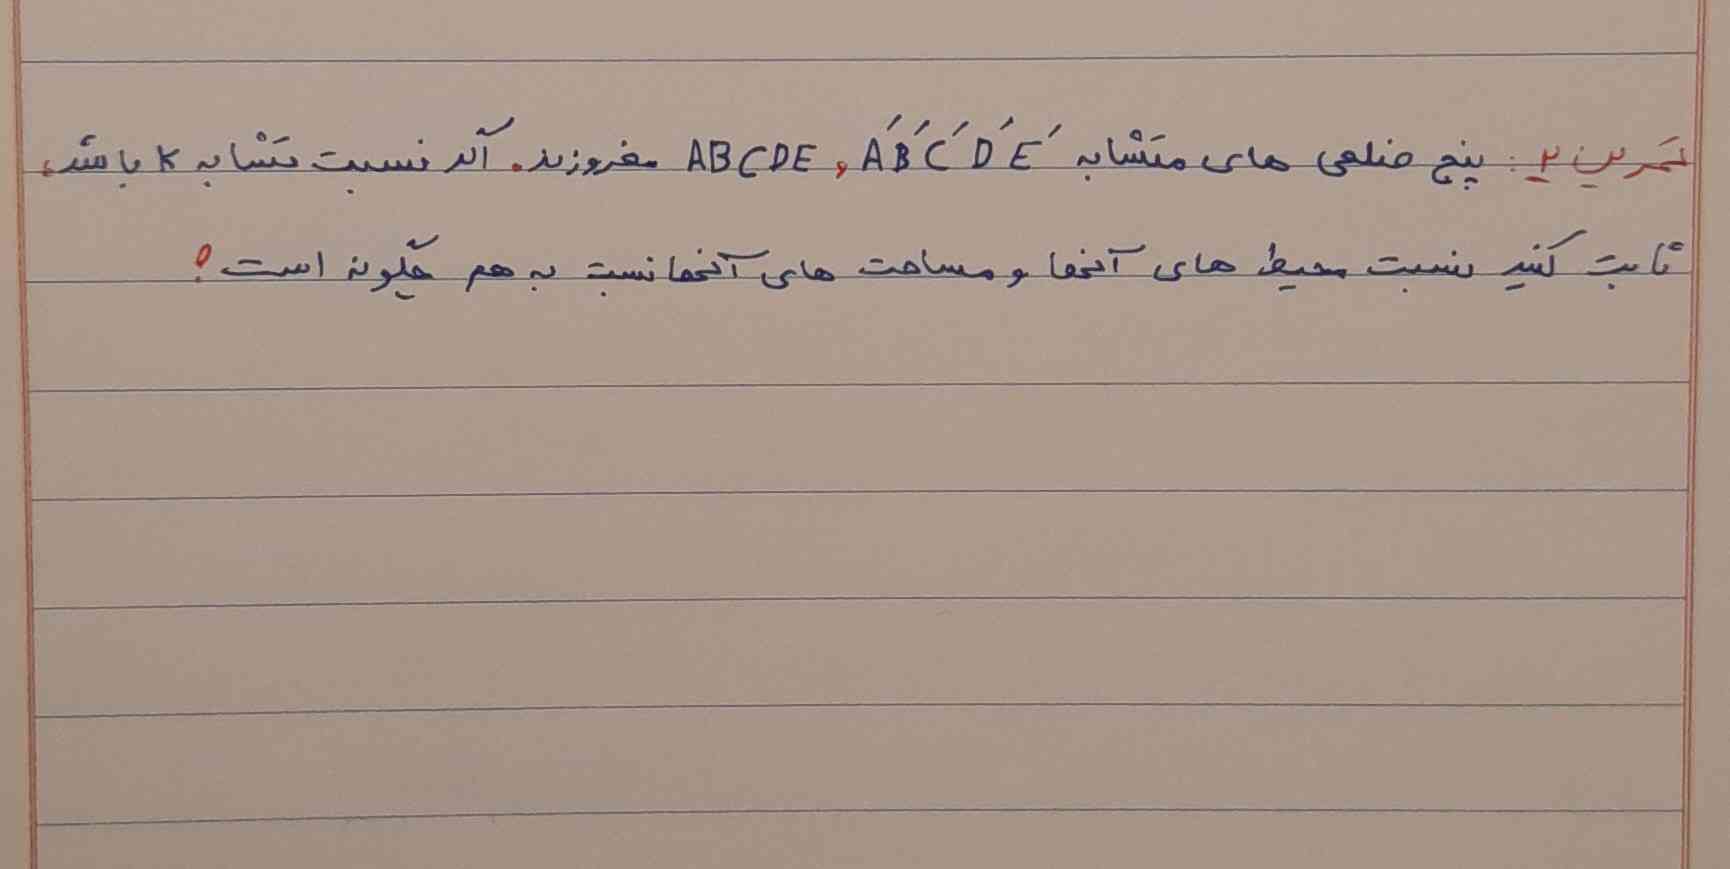 تمرین ۲: پنج ضلعی های متشابه A'B'C'D'E' و ABCDE مفروزند. اگر نسبت تشابه k باشد،
ثابت کنید نسبت محیط های آنها و مساحت های آنها نسبت به هم چگونه است؟